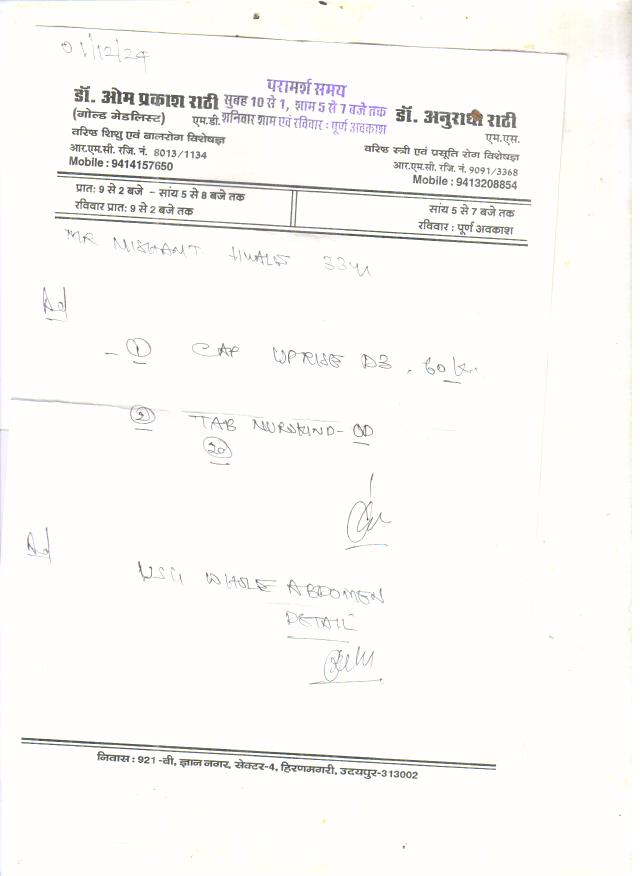 01/12/24
परामर्श समय
सुबह 10 से 1, शाम 5 से 7 बजे तक
शनिवार शाम एवं रविवार : पूर्ण अवकाश
डॉ. ओम प्रकाश राठी
(गोल्ड मेडलिस्ट) एम.डी.
वरिष्ठ शिशु एवं बालरोग विशेषज्ञ
आर.एम.सी. रजि. नं. 8013/1134
Mobile : 9414157650
डॉ. अनुराधा राठी
एम.एस.
वरिष्ठ स्त्री एवं प्रसूति रोग विशेषज्ञ
आर.एम.सी. रजि. नं. 9091/3368
Mobile : 9413208854
प्रात: 9 से 2 बजे - सांय 5 से 8 बजे तक
रविवार प्रात: 9 से 2 बजे तक
सांय 5 से 7 बजे तक
रविवार : पूर्ण अवकाश
MR NISHANT 33
Ad
- 1 CAP UPRISE D3. 60K
2 TAB NUROKIND - OD
20
Ad
USG WHOLE ABDOMEN
DETAIL
निवास : 921 -बी, ज्ञान नगर, सेक्टर-4, हिरणमगरी, उदयपुर-313002